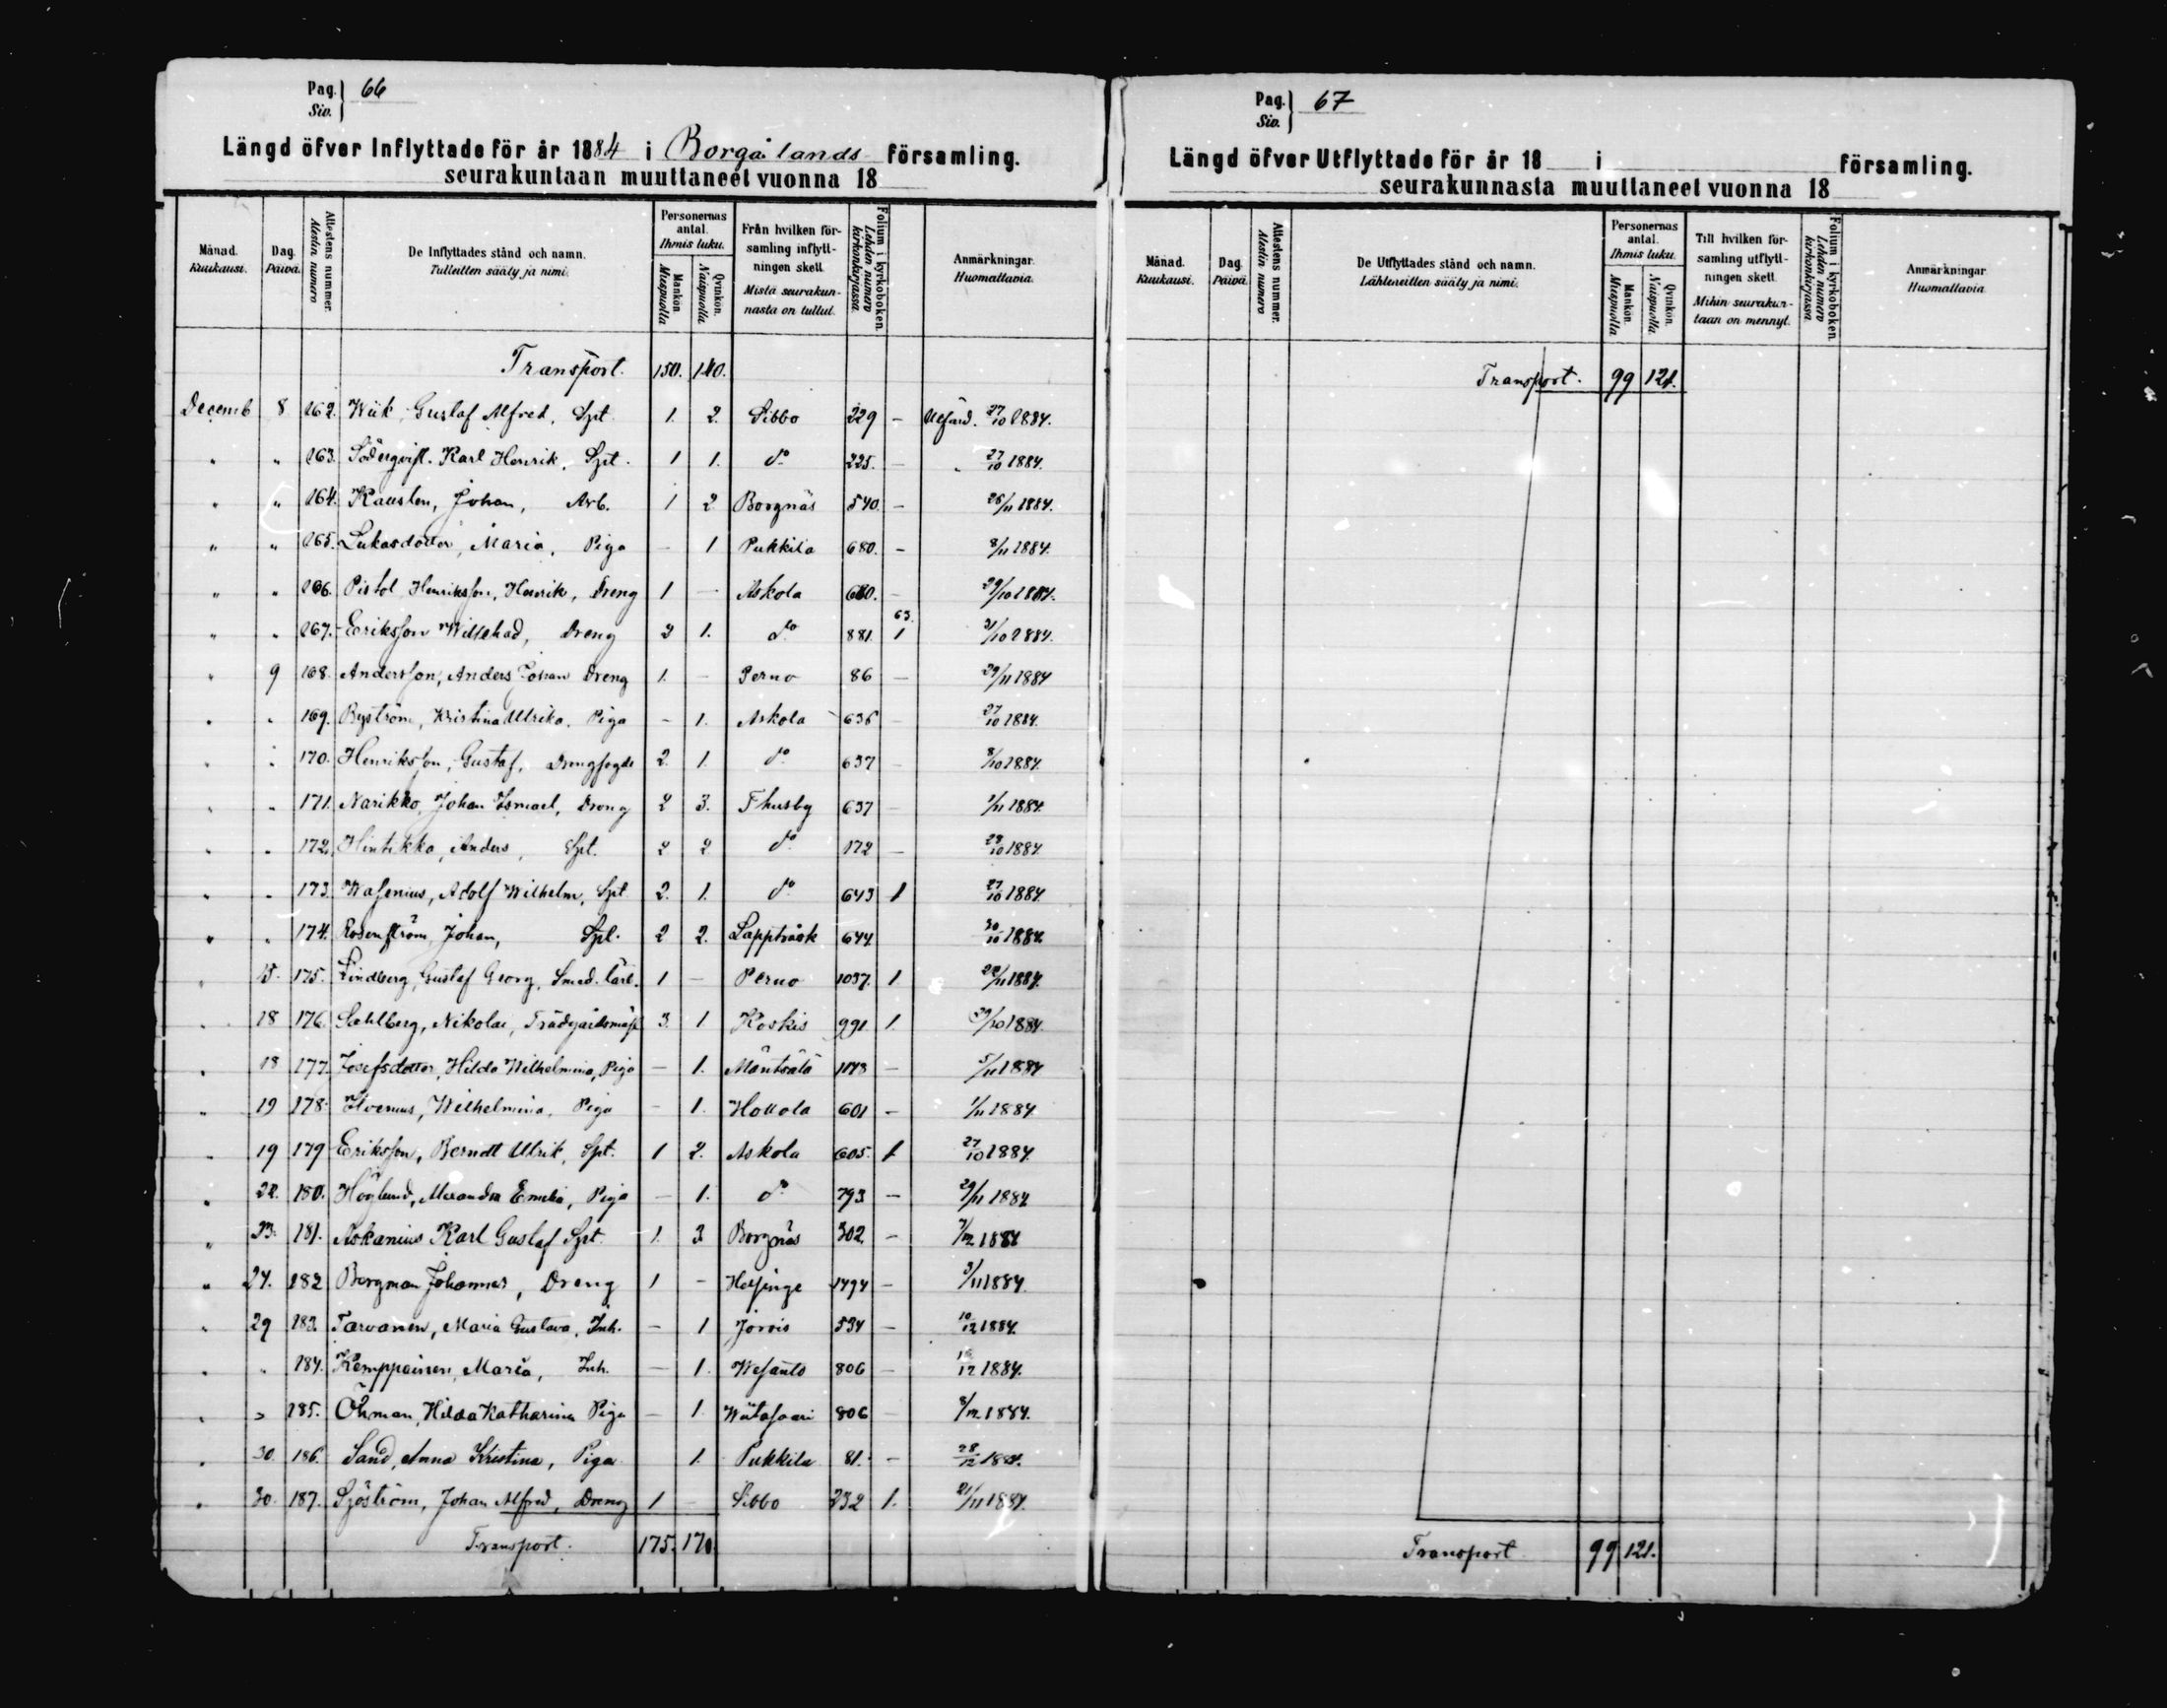 Pag. 66
Siv.
Längd öfver Inflyttade för år 1884 i Borgå lands församling.
seurakuntaan muuttaneet vuonna 18
Månad. Kuukausi. Dag. Päivä. Attestens nummer. Atestin numero De Inflyttades stånd och namn. Tulleitten sääty ja nimi. Personernas antal. Ihmis luku. Mankön. Miespuolia Qvinkön. Naispuolia Från hvilken församling inflyttningen skett. Mistä seurakunnasta on tullut. Folium i kyrkoboken. Lehden numero kirkonkirjassa. Anmärkningar. Huomattavia.
Transport. 150. 140.
Decemb 8 162. Wiik, Gustaf Alfred, Spt. 1. 2. Sibbo 229 - 27/10 1884.
" " 163. Söderqvist. Karl Henrik, Spt. 1 1. do 225. - 27/10 1884.
" " 164. Kausten, Johan, Arb. 1 2 Borgnäs 540. - 26/11 1884.
" " 165. Lukasdotter, Maria, Piga - 1 Pukkila 680. - 8/11 1884.
" " 166. Pistol Henriksson, Henrik, Dreng 1 - Askola 680. - 29/10 1884.
" " 167. Eriksson Willehad, Dreng 2 1. do 881. 63. 1 31/10 1884.
" 9 168. Andersson, Anders Johan Dreng 1. - Perno 86 - 29/11 1884
" " 169. Byström, Kristina Ulrika. Piga - 1. Askola 636 - 27/10 1884.
" " 170. Henriksson, Gustaf, Drengfogde 2. 1. do 637 - 8/10 1884.
" " 171. Narikko, Johan Ismael, Dreng 2 3. Thusby 637 - 1/11 1884.
" " 172. Hintikka, Anders, Spt. 2 2 do 172 - 28/10 1884.
" " 173. Wasenius, Adolf Wilhelm, Spt 2. 1. do 643 1 27/10 1884.
" " 174. Rosenström, Johan, Spt. 2 2. Lappträsk 644 30/10 1884.
" 15. 175. Lindberg, Gustaf Georg, Smed. lärl. 1 - Perno 1037. 1 22/11 1884.
" 18 176. Sahlberg, Nikolai, Trädgårdsmäst. 3. 1 Koskis 991 1. 29/10 1884.
" 18 177. Josefsdotter, Hilda Wilhelmina, Piga - 1. Mäntsälä 1173 - 5/11 1884
" 19 178. Wilhelmina, Piga - 1. Hollola 601 - 1/11 1884.
" 19 179 Eriksson, Berndt Ulrik, Spt. 1 2. Askola 605. 1. 27/10 1884.
" 22. 180. Höglund, Alexandra Emilia, Piga - 1. do 793 - 29/11 1884
" 23. 181. Askanius Karl Gustaf Spt. 1. 3 Borgnäs 302. - 7/12 1884
" 24. 182 Bergman Johannes, Dreng 1 - Helsinge 1494 - 3/11 1884.
" 29 183. Tarvanen, Maria Gustava, Inh. - 1 Jorois 534 - 10/12 1884.
" " 184. Kemppainen, Maria, Inh. - 1. Wesanto 806 - 12 1884.
" " 185. Öhman, Hilda Katharina Piga - 1. Wiitasaari 806 8/12 1884.
" 30. 186. Sand, Anna Kristina, Piga 1. Pukkila 81. - 28/12 1884.
" 30. 187. Sjöström, Johan Alfred, Dreng 1 - Sibbo 232 1. 21/11 1884.
Transport. 175. 170
Pag. 67
Siv.
Längd öfver Utflyttade för år 18 i församling.
seurakunnasta muuttaneet vuonna 18
Månad. Kuukausi. Dag. Päivä. Attestens nummer. Atestin numero De Utflyttades stånd och namn. Lähteneitten sääty ja nimi. Personernas antal. Ihmis luku. Mankön. Miespuolia Qvinkön. Naispuolia. Till hvilken församling utflyttningen skett. Mihin seurakuntaan on mennyt. Folium i kyrkoboken. Lehden numero kirkonkirjassa Anmärkningar Huomattavia
Transport. 99 121.
Transport 99 121.